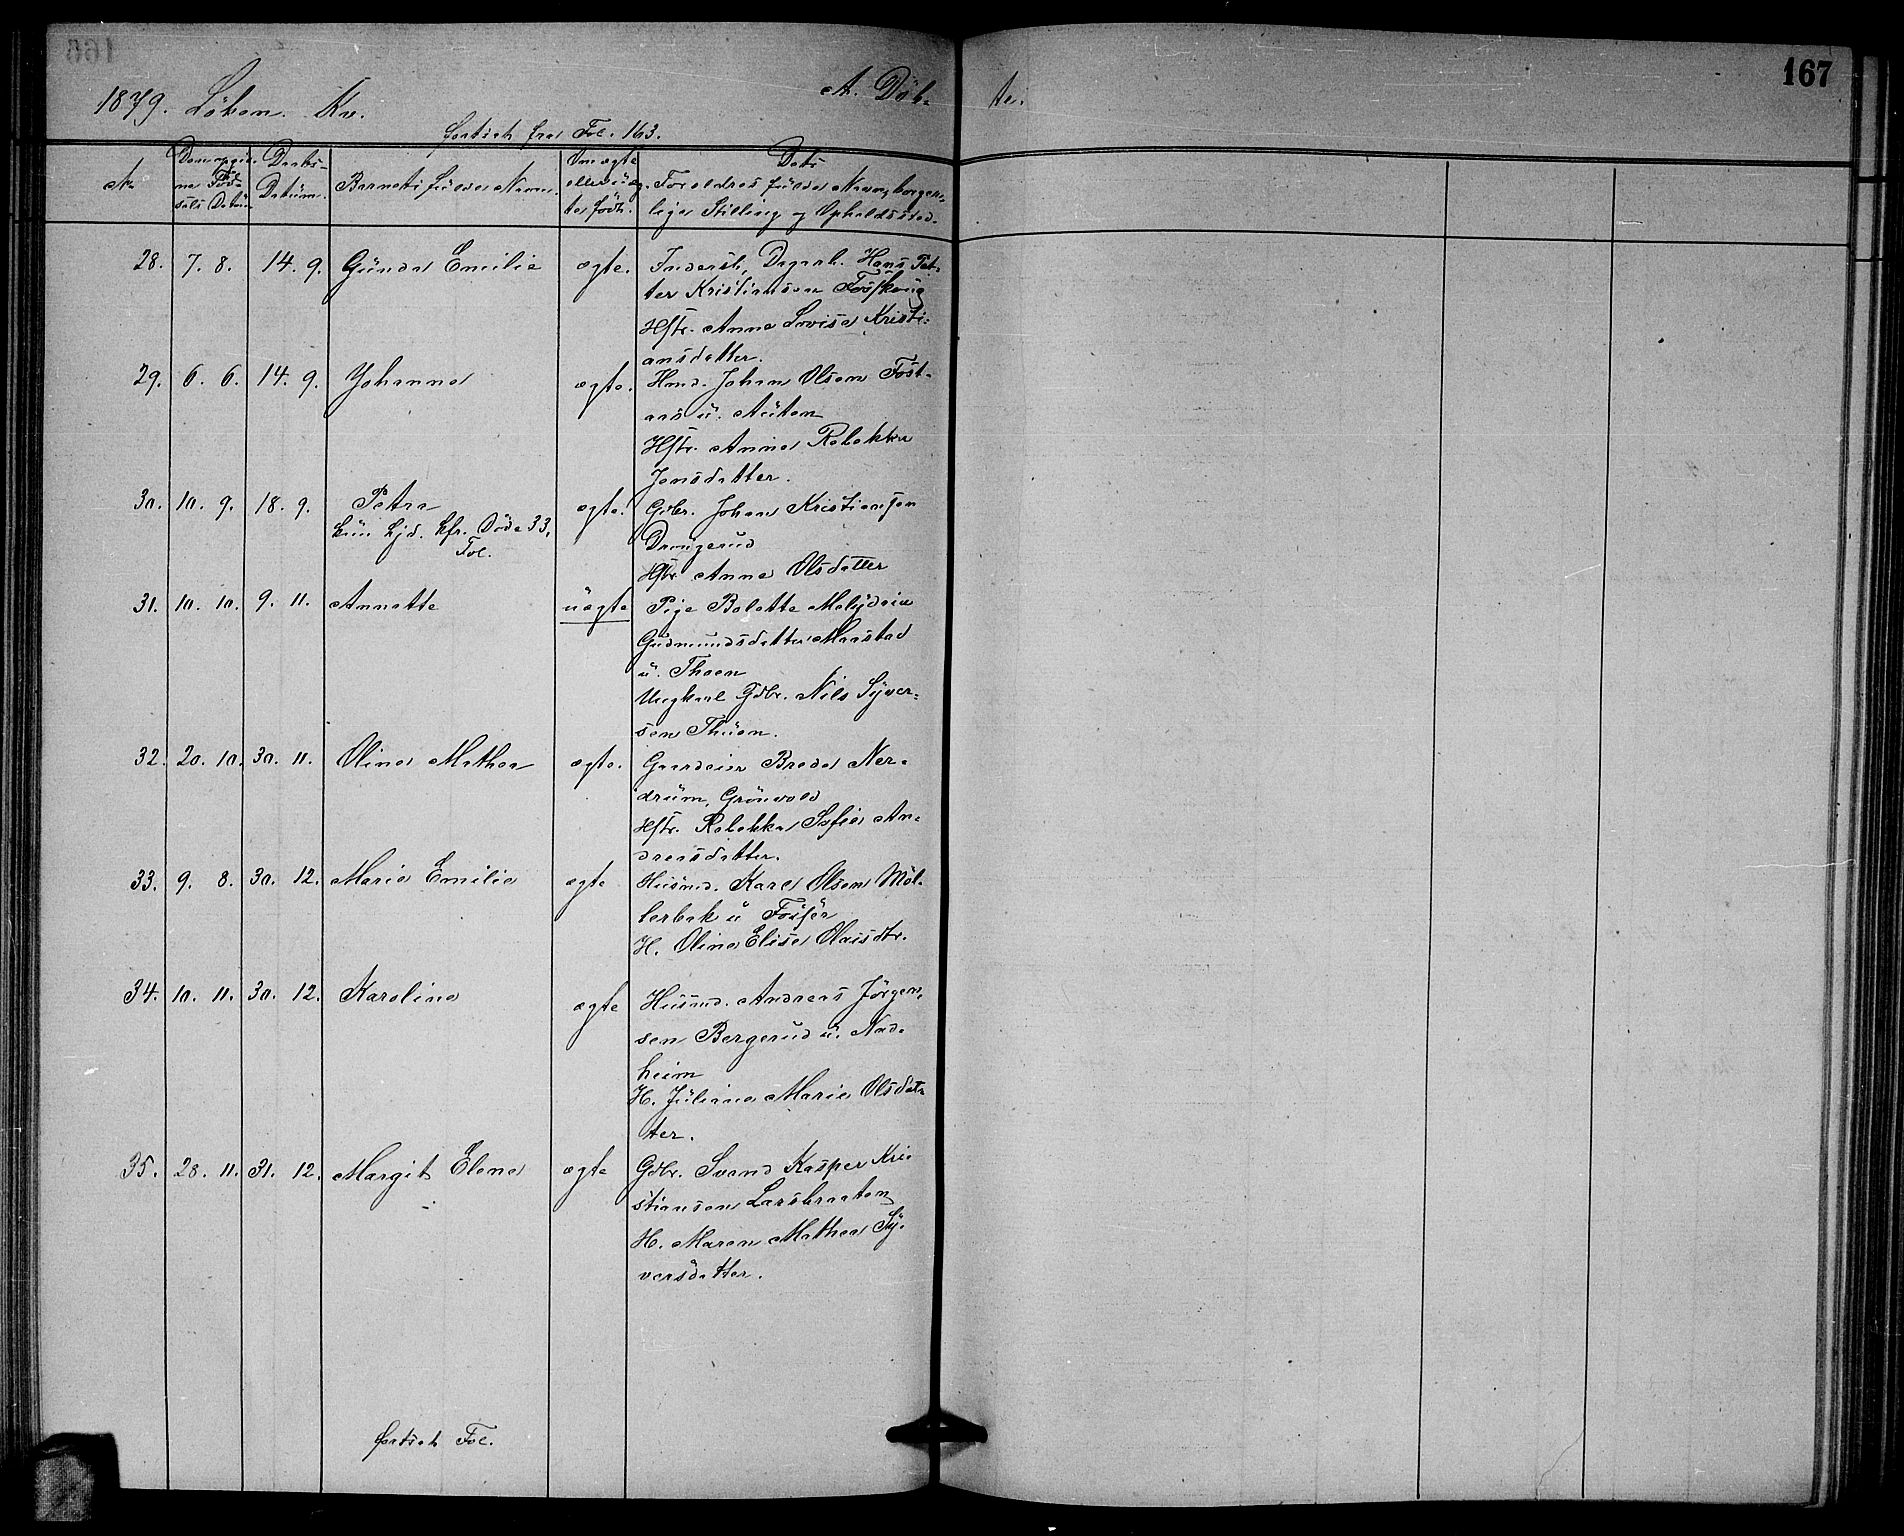 167
1879. Löken. Kv. A. Döb-
te.
fortsat fra Fol. 163.
No Datum Barnets fulde Navn Om ægte Dets
eller uæg- Forældres fulde Navn, borger-
te födt. lige Stilling og Opholdssted.
28. 7. 8. 14. 9. Gunda Emilie ægte. Inderst, Dagarb. Hans Pet-
ter Kristiansen
Hstr. Anne Lovise Kristi-
ansdatter.
29. 6. 6. 14. 9. Johanna ægte. Hmd. Johan Olsen
aas u. Auten
Hstr. Anna Rebekka
Jensdatter.
30. 10. 9. 18. 9. Petra ægte. Gdbr. Johan Kristiansen
kun hjd. kfr. Döde 33, Drougerud
Fol. Hstr Anne Olsdatter
31. 10. 10. 9. 11. Annette uægte Pige Bolette
Gudmundsdatter Maastad
u. Thoen
Ungkarl Gdbr. Nils Syver-
sen Thuen.
32. 20. 10. 30. 11. Olina Mathea ægte. Gaardeier Brede Ner-
drum, Grönvold
Hstr. Rebekka Sofie An-
dreasdatter.
33. 9. 8. 30. 12. Marie Emilie ægte Husmd. Karl Olsen Möl-
lerbek u Fosser
H. Oline Elise Olaisdtr.
34. 10. 11. 30. 12. Karoline ægte Husmd. Andreas Jörgen-
sen Bergerud u. Nad-
heim
H. Juliane Marie Olsdat-
ter.
35. 28. 11. 31. 12. Margit Elene ægte Gdbr. Svend Kasper Kri-
stiansen Larsbraaten
H. Maren Mathea Sy-
versdatter.
fortsat Fol.